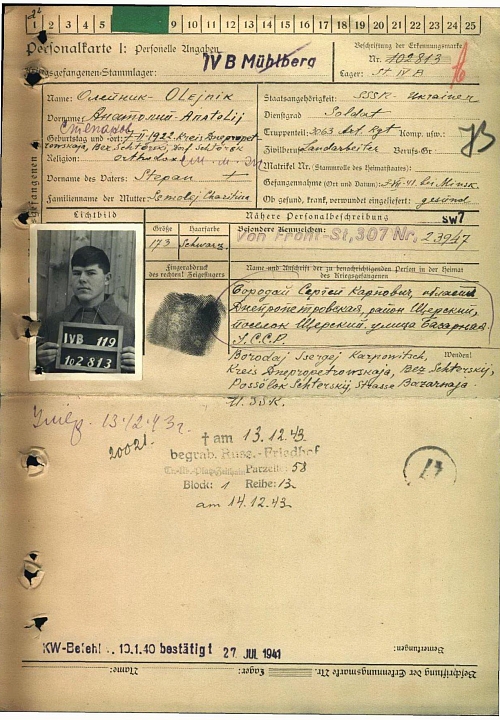 1 2 3 4 5 9 10 11 12 13 14 15 16 17 18 19 20 21 22 23 24 25
Personalkarte I: Personelle Angaben
IV B Mühlberg
Beschriftung der Erkennungsmarke
Nr. 102813
Kriegsgefangenen-Stammlager:
Lager: St. IV B
Name: Олейник - OLEJNIK
Staatsangehörigkeit: SSSR - Ukrainer
Vorname: Анатолий - Anatolij
Dienstgrad Soldat
Степанов
Geburtstag und -ort: 1922 Kreis Dnepropet-
Truppenteil: Art. Rgt Komp. usw.:
Zivilberuf: Landarbeiter Berufs-Gr.
Religion: orthodox
Matrikel Nr. (Stammrolle des Heimatstaates):
Vorname des Vaters: Stepan +
Gefangennahme (Ort und Datum): bei Minsk
Familienname der Mutter:
Ob gesund, krank, verwundet eingeliefert: gesund
Lichtbild
Nähere Personalbeschreibung
SW7
Größe Haarfarbe Besondere Kennzeichen:
173 Schwarz
Von Front-St. 307 Nr. 23947
Fingerabdruck
des rechten! Zeigefingers
Name und Anschrift der zu benachrichtigenden Person in der Heimat
des Kriegsgefangenen
Бородай Сергей Карпович, область
Днепропетровская, район Щерский,
поселок Щерский, улица Базарная
IVB 119
102813
Borodaj Ssergej Karpowitsch, Wenden!
Kreis Dnepropetrowskaja, Bez. Schterskij,
Possölok Schterskij, Strasse Bazarnaja
U.SSR.
13.12.43г.
20021.
† am 13.12.43
begrab. Russ.-Friedhof
Parzelle: 58
Block: 1 Reihe: 13
am 14.12.43
KW-Befehl bestätigt 27. JUL 1941
Bemerkungen:
Beschriftung der Erkennungsmarke Nr. Lager: Name: